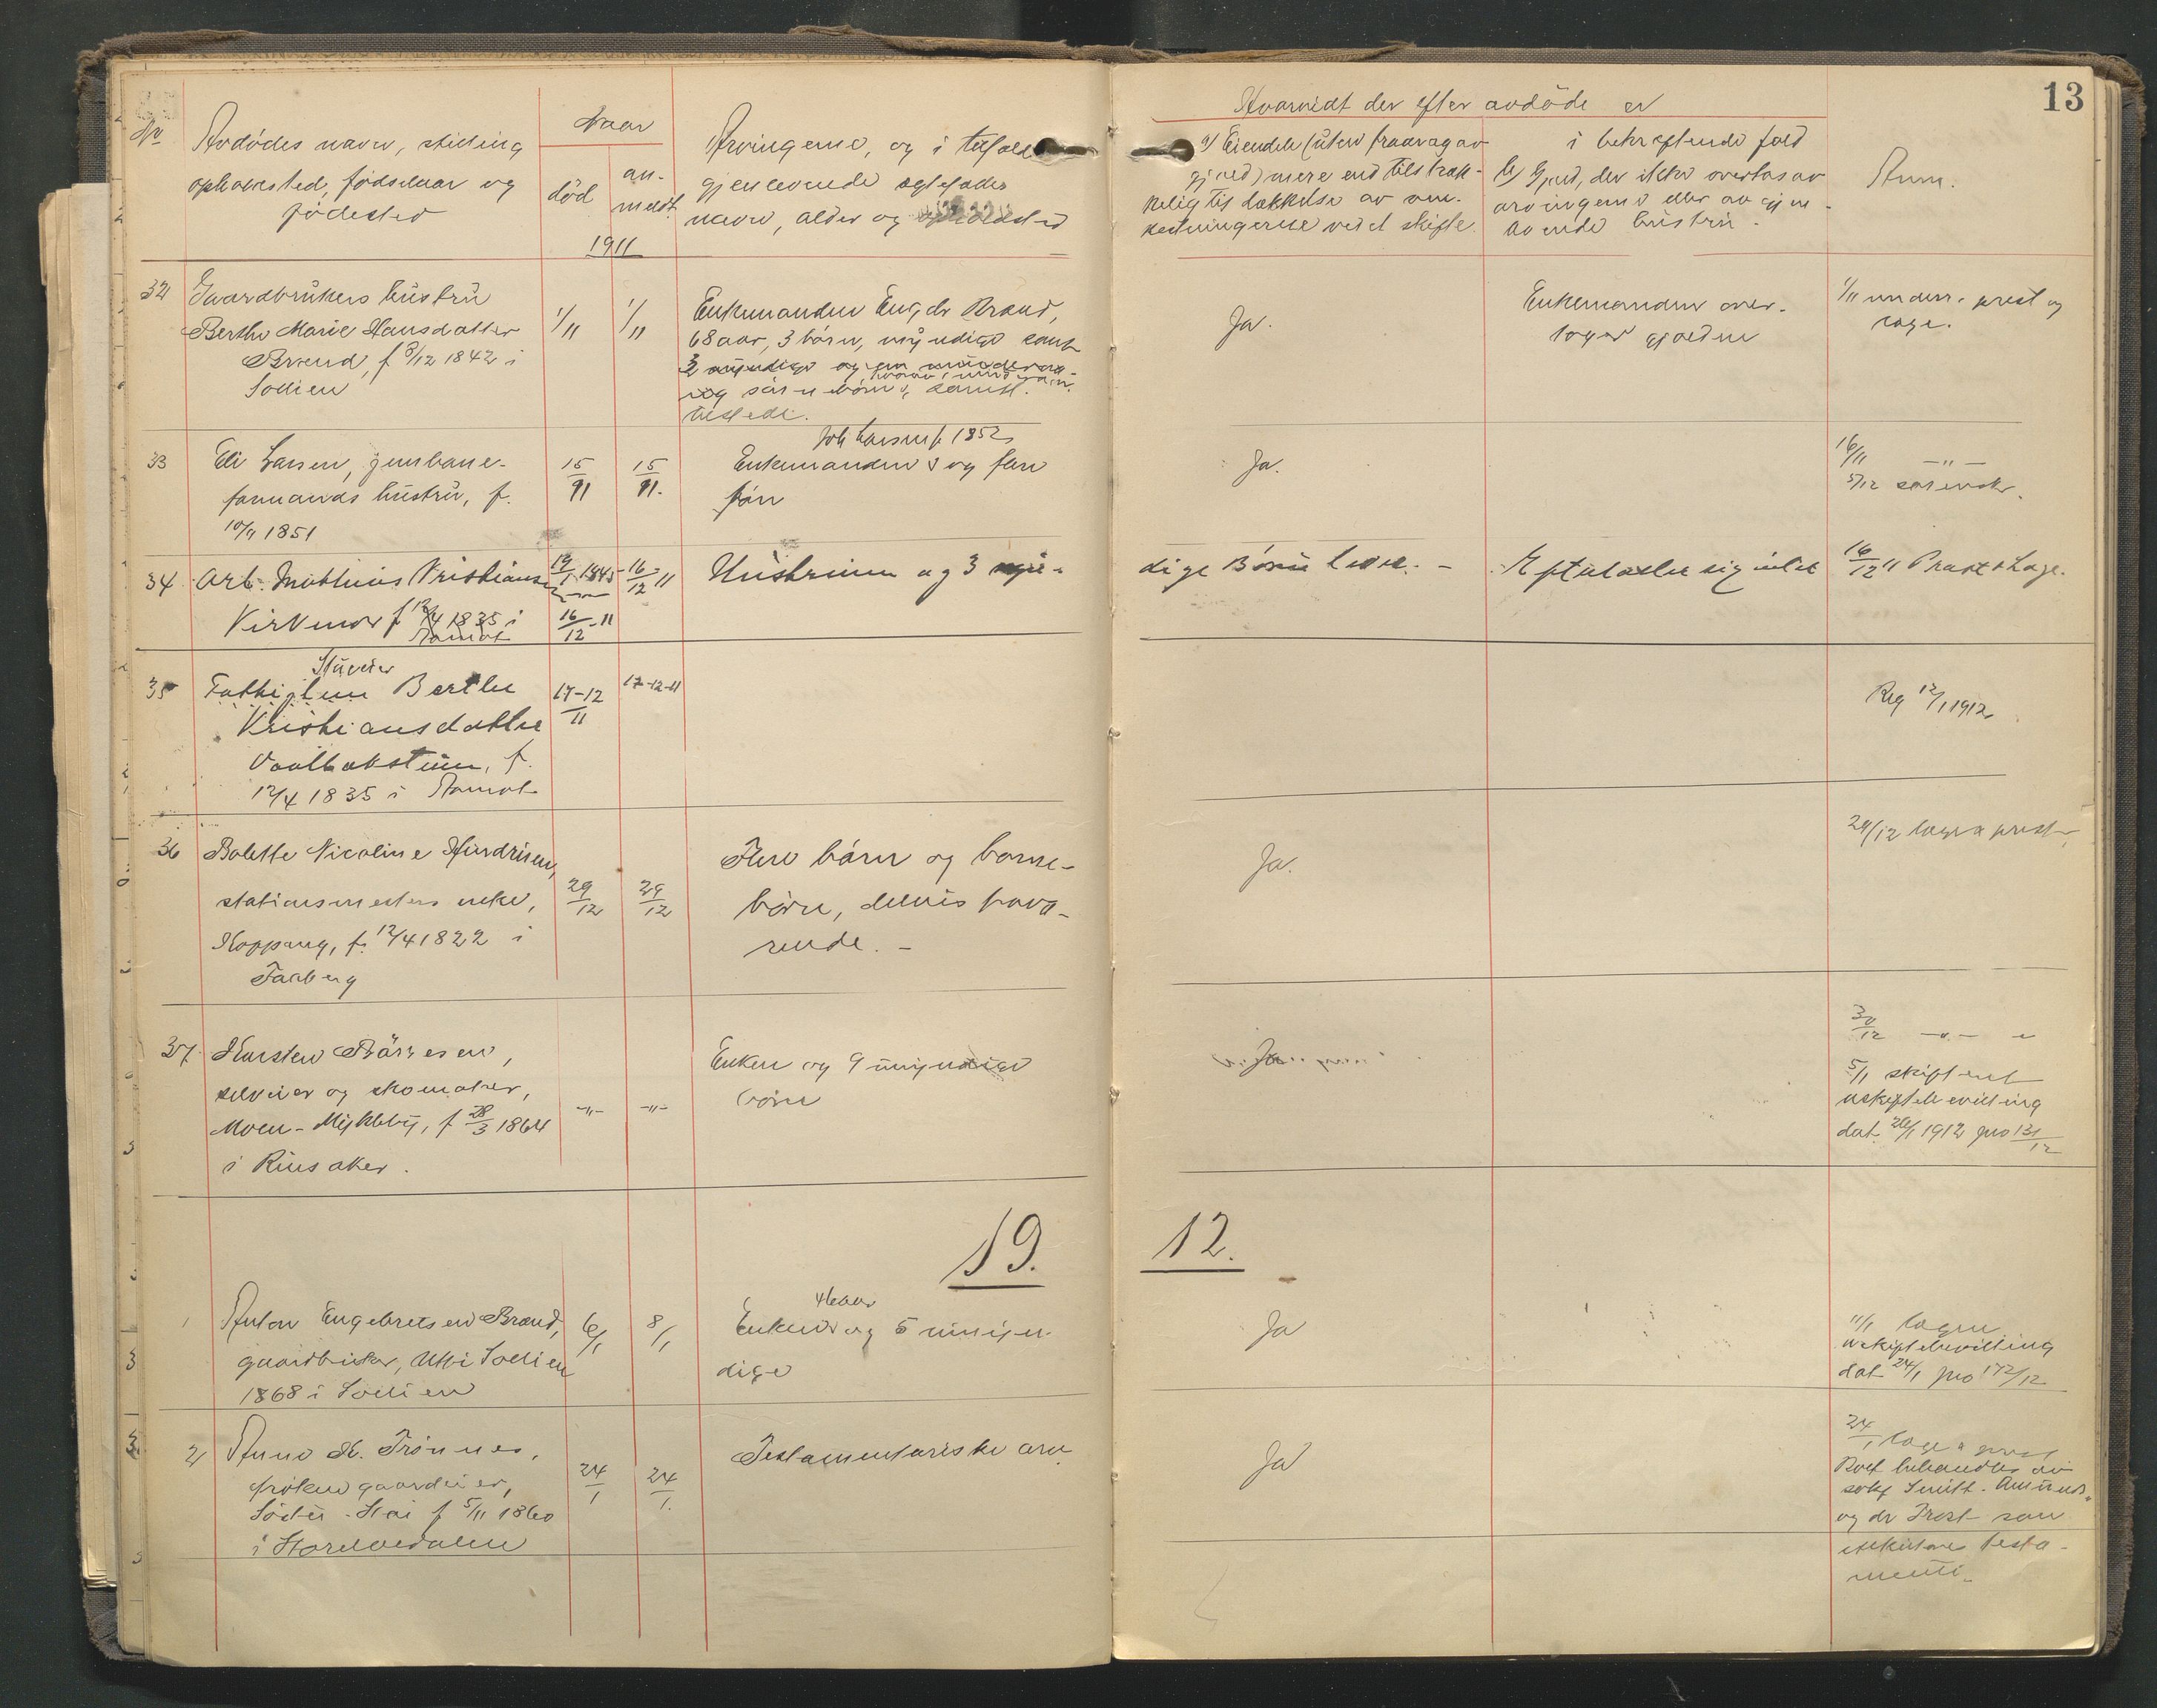 13
No
Avdødes navn, stilling
opholdssted, fødselaar og
fødested
Naar
død
an-
meldt
1911
Arvingerne, og i tilfælde
gjenlevende egtefælles
navn, alder og opholdssted
Hvorvidt der efter avdøde er
a) Eiendele (uten fradrag av
gjæld) mere end tilstræk-
kelig til dækkelse av om-
kostningerne ved et skifte
i bekræftende fald
b) Gjæld, der ikke overtas av
arvingerne eller av gjen-
levende hustru.
Anm.
32
Gaardbrukers hustru
Berthe Marie Hansdatter
Brænd, f 8/12 1842 i
Sollien
1/11
1/11
Enkemanden Eng. Brænd,
68 aar, 3 børn, myndige samt
3 myndige og en mindreaa-
rig
tilstede.
Ja.
Enkemanden over-
tager gjælden
1/11 underr. prest og
lage.
33
Eli Larsen, jernbane-
formands hustru, f.
10/9 1851
15/11
15/11.
Joh Larsen f. 1852
Enkemanden og flere
børn
Ja.
16/11 — " —
5/12 sorenskr.
34
Arb. Mathias Kristiansen
f 12/4 1835 i
Aamot
16/12-11
16/12 11
Hustruen og 3 myn-
dige Børn leve. -
Efterlader sig intet
16/12 11 Prest & Lage.
35
Stueier
Fattiglem Berthe
Kristiansdatter
f.
12/4 1835 i Aamot
17-12
11
17-12-11
Reg 12/1 1912
36
Bolette Nicoline Hindriksen,
stationsmesters enke,
Koppang, f. 12/4 1822 i
Faaberg
29/12
29/12
Flere børn og barne-
børn, delvis frava-
rende. -
Ja.
29/12 lage & prest
37.
Karsten Børresen,
selveier og skomaker,
Moen-Mykleby, f 28/3 1864
i Ringsaker.
-"-
-"-
Enken og 9 umyndige
børn
Ja
30/12 -"- "
5/1 skifteret
uskiftebevilling
dat. 26/1 1912 pro 131/12
19.
12.
1
Anton Engebretsen Brænd,
gaardbruker, Utti Sollien
1868 i Sollien
6/1
8/1
46 aar
Enken og 5 umyn-
dige
Ja
11/1 lagen
uskiftebevilling
dat 24/1 pro 172/12
2
Anne K. Trønnes,
frøken gaardeier,
Søstu-Stai f 5/11 1860
i Storelvedalen
24/1
24/1.
Testamentariske arv.
Ja
24/1 lage & prest
Boet behandles av
sakf Smith. Amunds.
og dr Prest som
eksekutores testa-
menti.